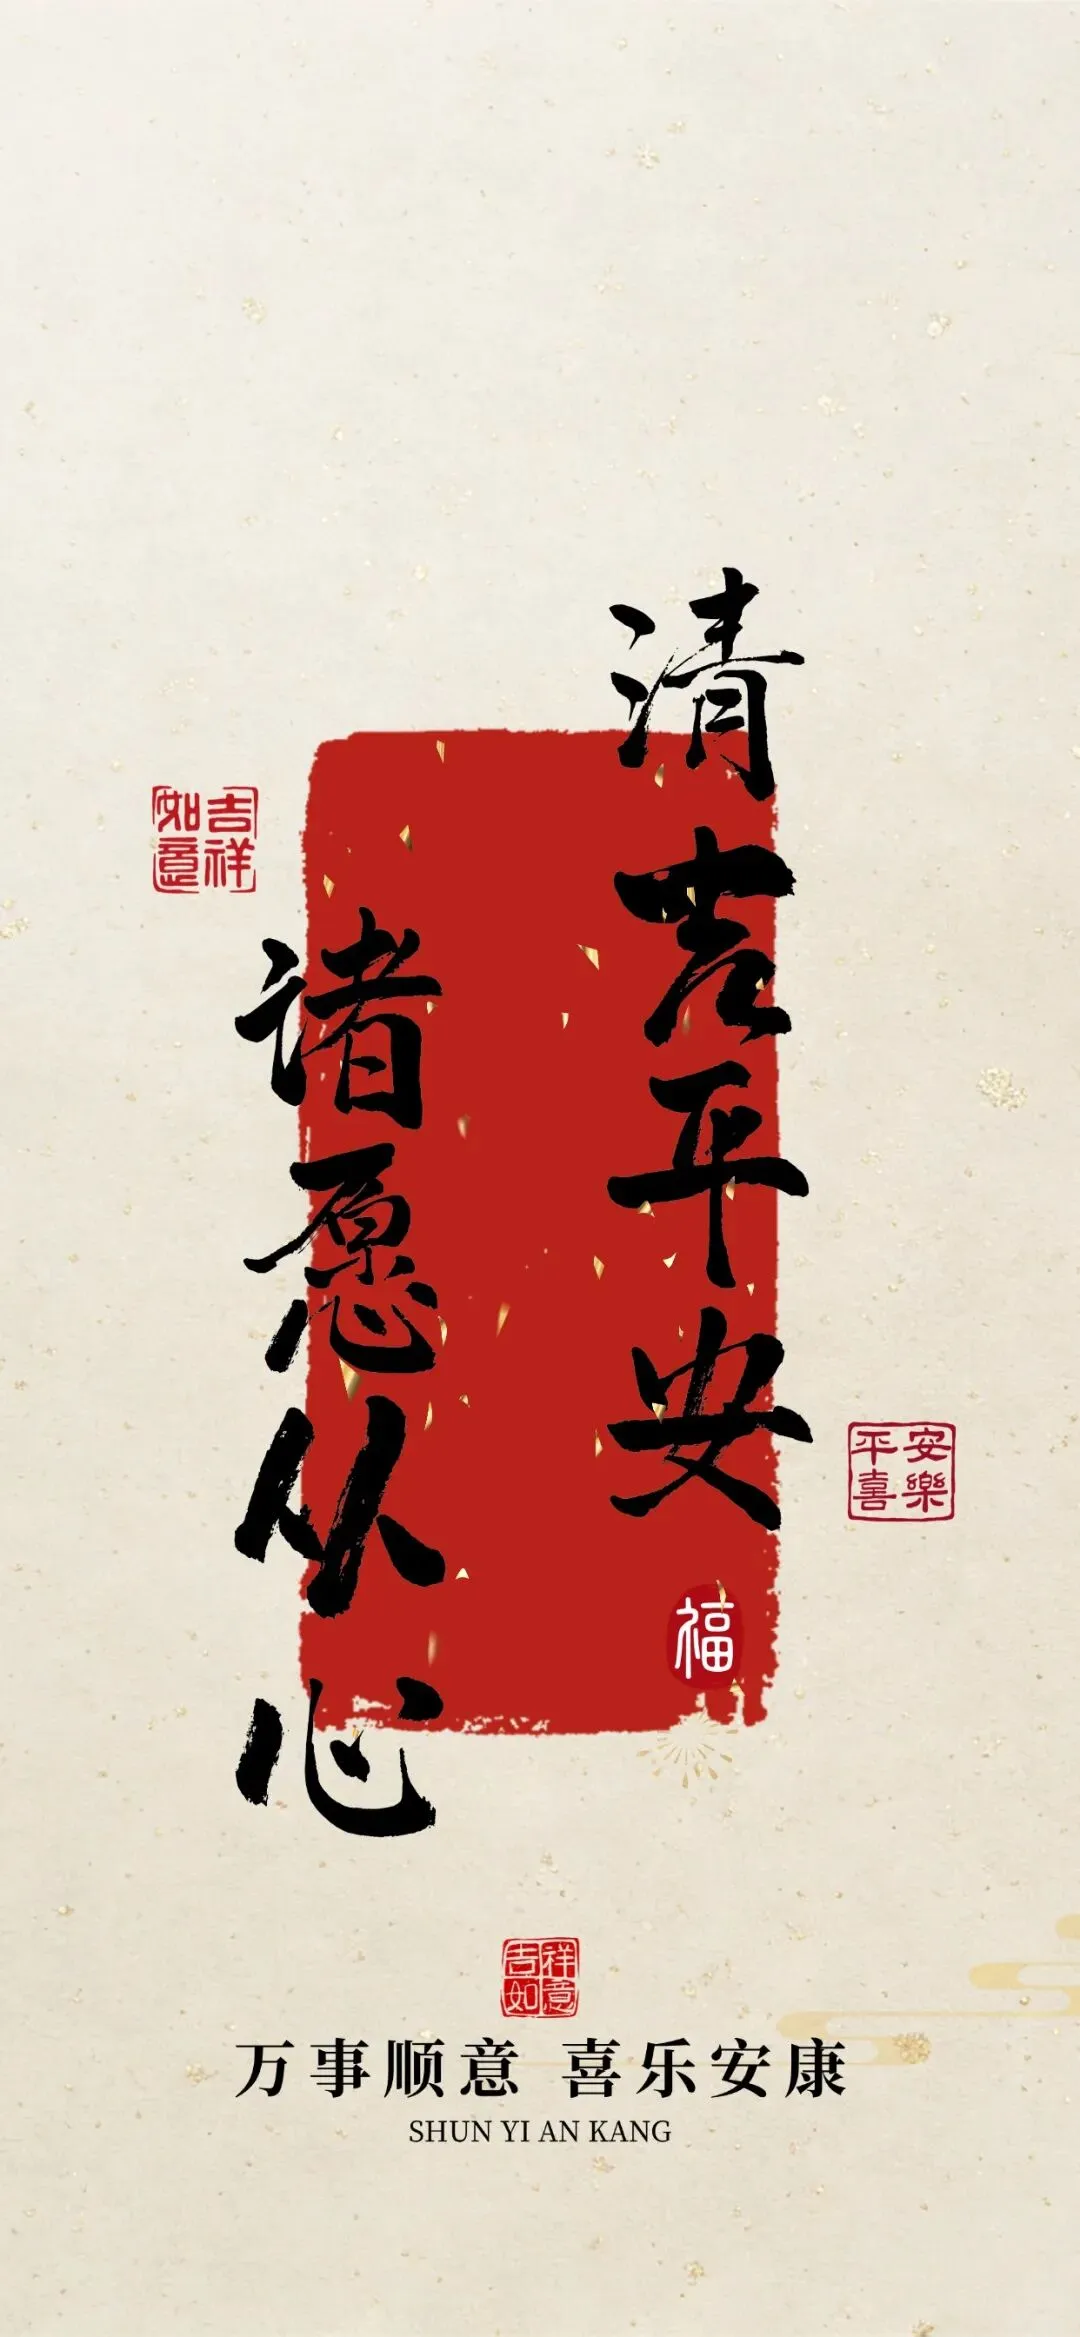 清吉平安
诸愿从心
吉祥
如意
安樂
平喜
福
吉祥
如意
万事顺意 喜乐安康
SHUN YI AN KANG